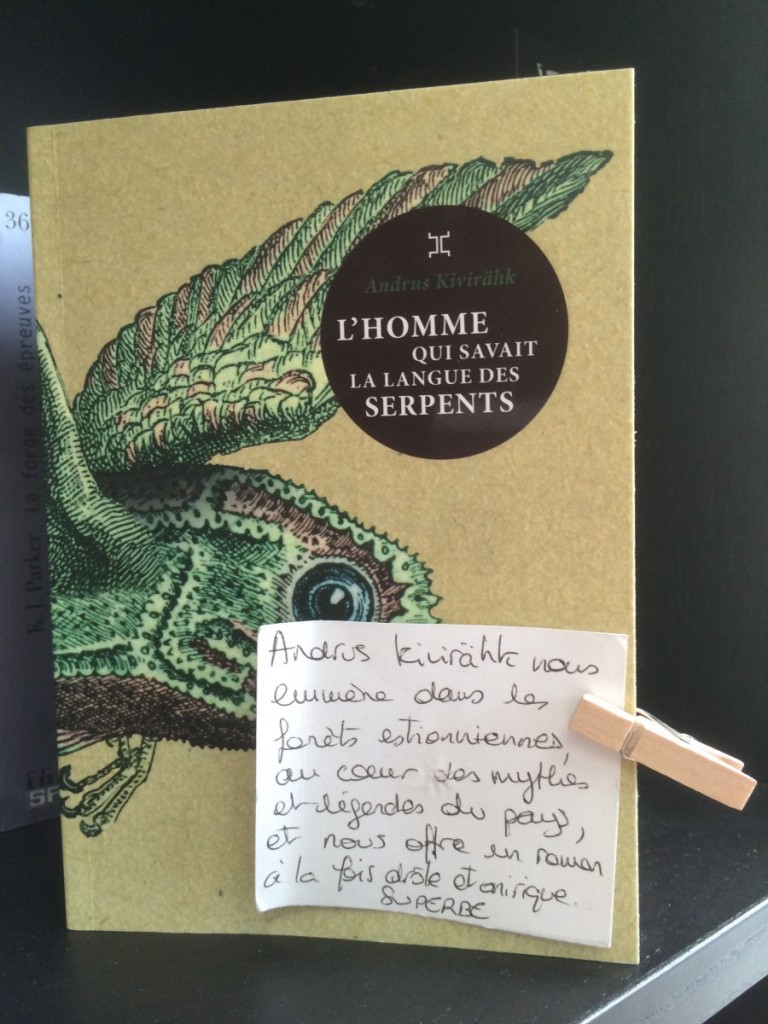 Andrus Kivirähk
L'HOMME
QUI SAVAIT
LA LANGUE DES
SERPENTS
Andrus Kivirähk nous
emmène dans les
forêts estionniennes,
au coeur des mythes
et légendes du pays,
et nous offre un roman
à la fois drôle et onirique.
SUPERBE
36
K. J. Parker La forge des épreuves
SF